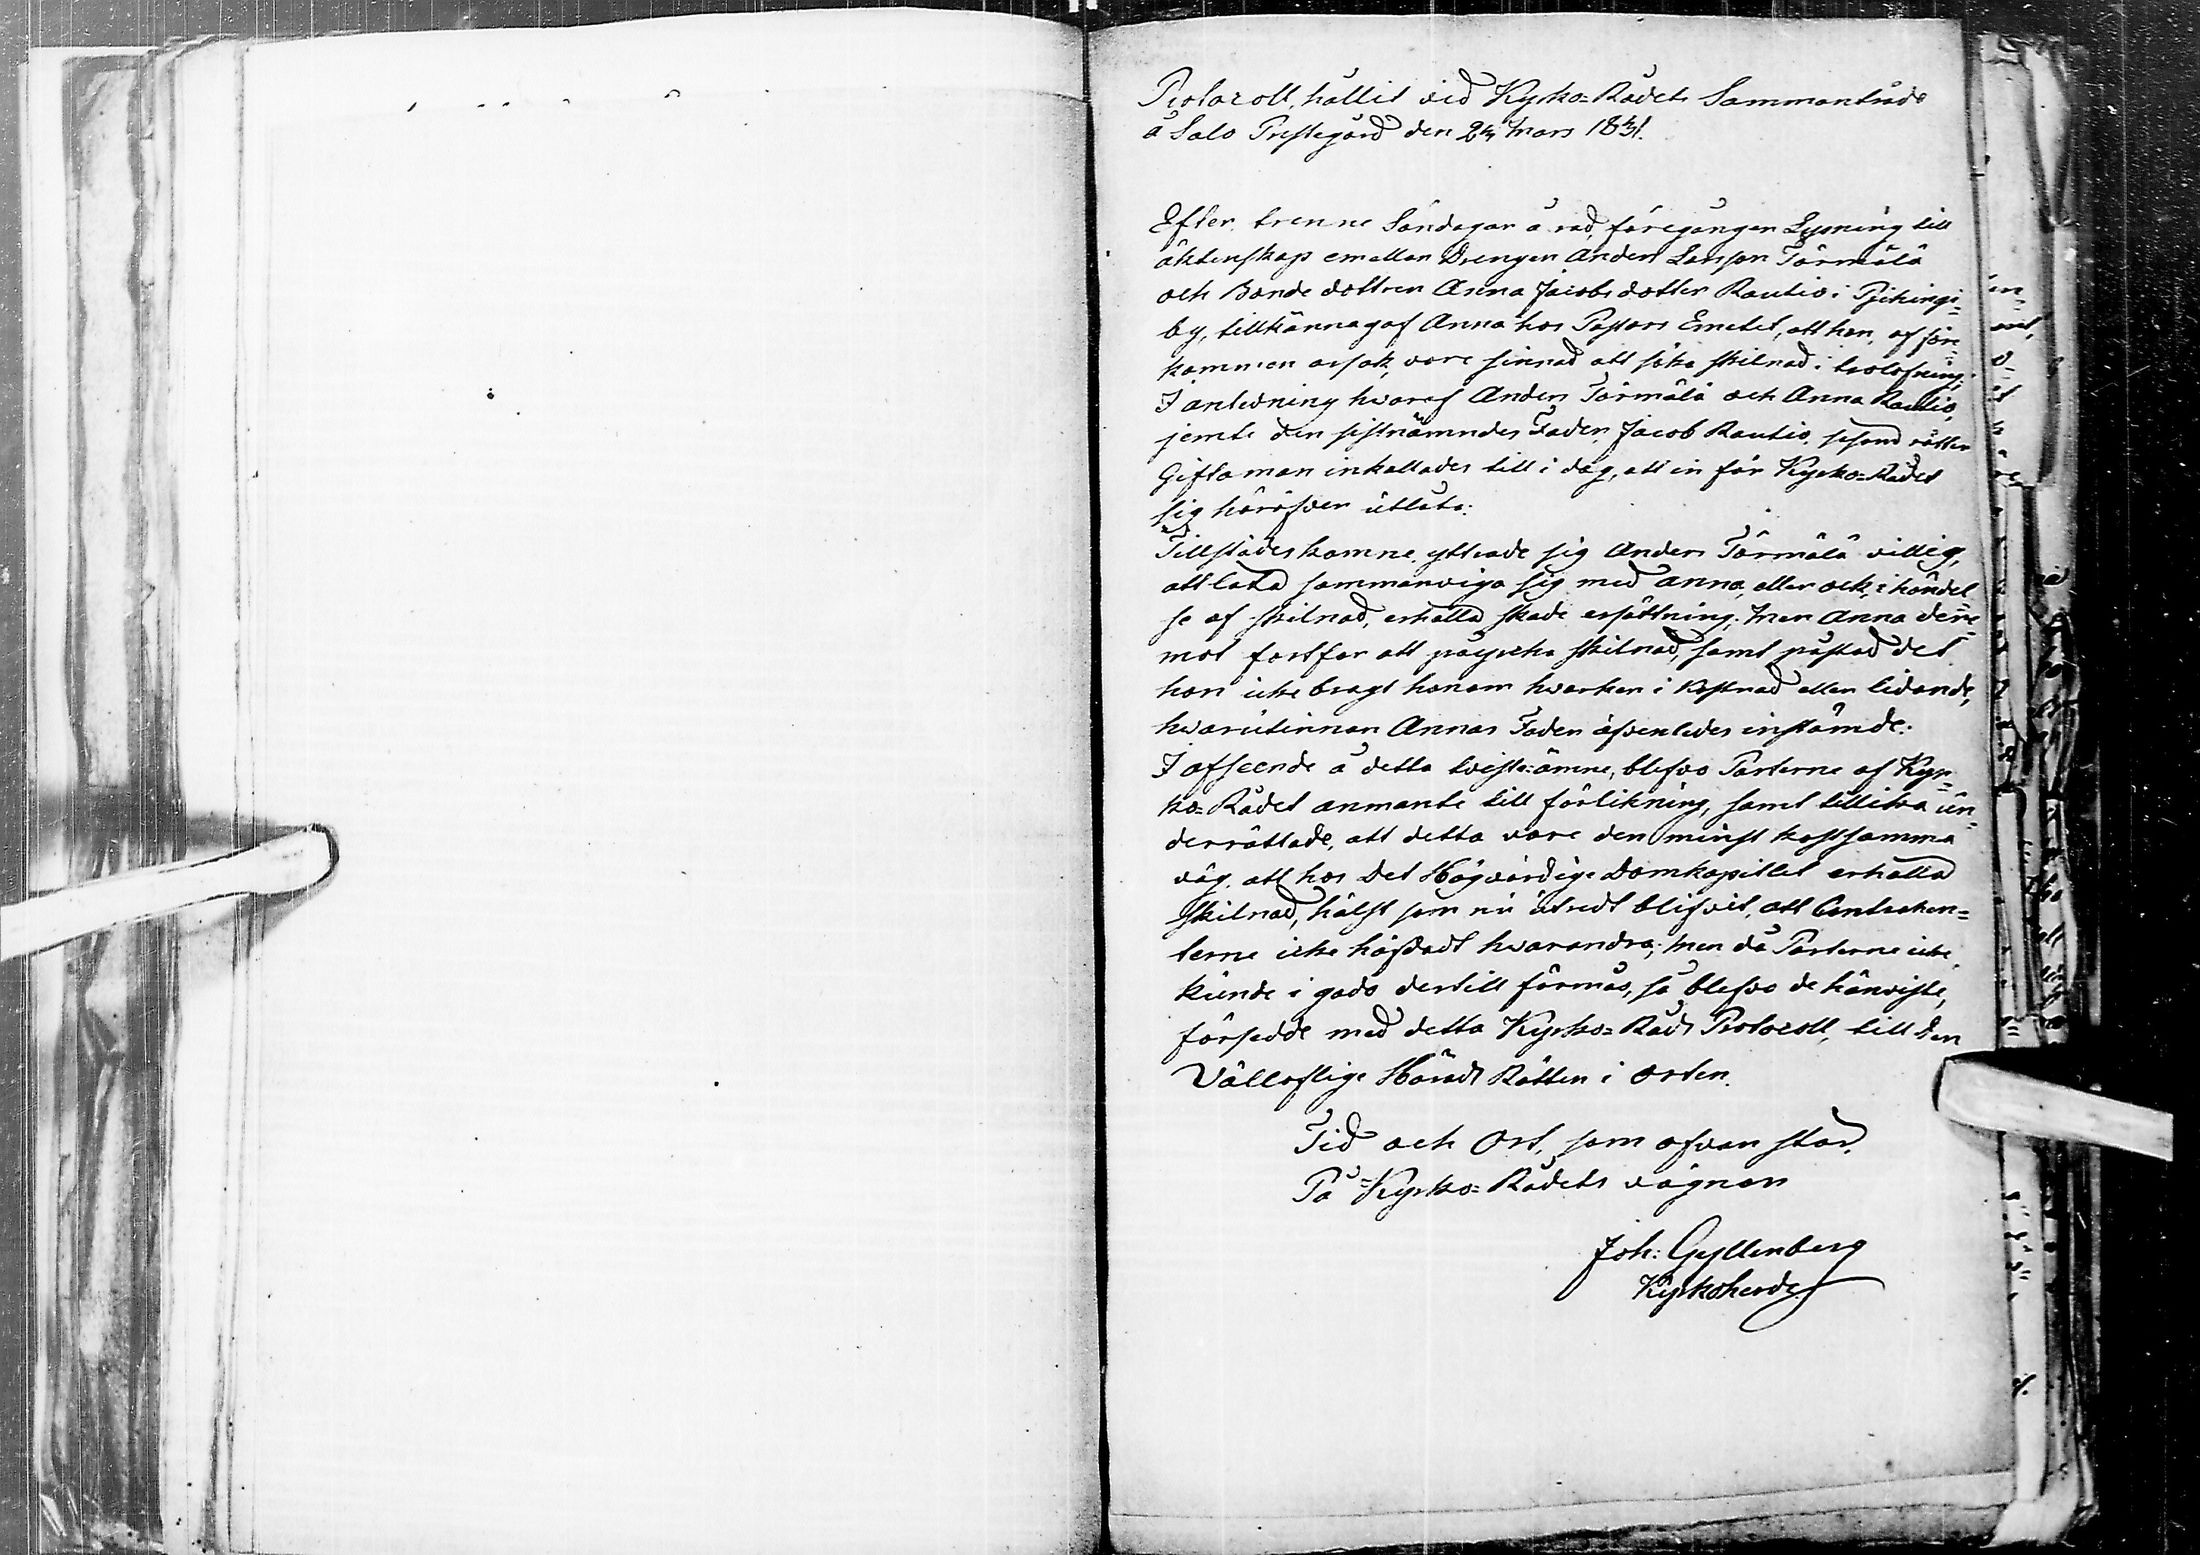 Protocoll, hållit vid Kyrko-Rådets Sammanträde
å Salo Prestegård den Mars
Efter trenne Söndagar å rad föregången Lysning till
äktenskap emellan Drengen Anders Larsson Törmälä
och Bonde dottren Anna Jacobsdotter Rautio i
by, tillkännagaf Anna hos Pastors Embetet, att hon, af före-
kommen orsak, vore sinnad att söka skilnad i trolofning;
I anledning hvaraf Anders Törmälä och Anna Rautio,
jemte den sistnämndes Fader Jacob Rautio, såsom rätter
Giftoman inkallades till i dag, att in för Kyrko-Rådet
sig häröfver utlåta:
Tillstädeskomne yttrade sig Anders Törmälä villig,
att låta sammanviga sig med Anna, eller ock, i händel-
se af skilnad, erhålla skade ersättning; men Anna der-
mot fortfor att påyrka skilnad, samt påstod det
hon icke bragt honom hvarken i kostnad eller lidande,
hvarutinnan Annas Fader äfvenledes instämde.
I afseende å detta tviste-ämne, blefvo Parterne af Kyr-
ko-Rådet anmante till förlikning, samt tillika un-
derrättade, att detta vore den minst kostsamma
väg, att hos Det Högvördige Domkapitlet erhålla
skilnad, hälst som nu utredt blifvit, att Contrahen-
terne icke häfdadt hvarandra; men då Parterne icke
kunde i godo dertill förmås, så blefvo de hänviste,
försedde med detta Kyrko-Råds Protocoll, till den
Vällofliga Härads Rätten i orten.
Tid och Ort, som ofvan står.
På Kyrko-Rådets vägnar
Joh: Gyllenberg
Kyrkoherde